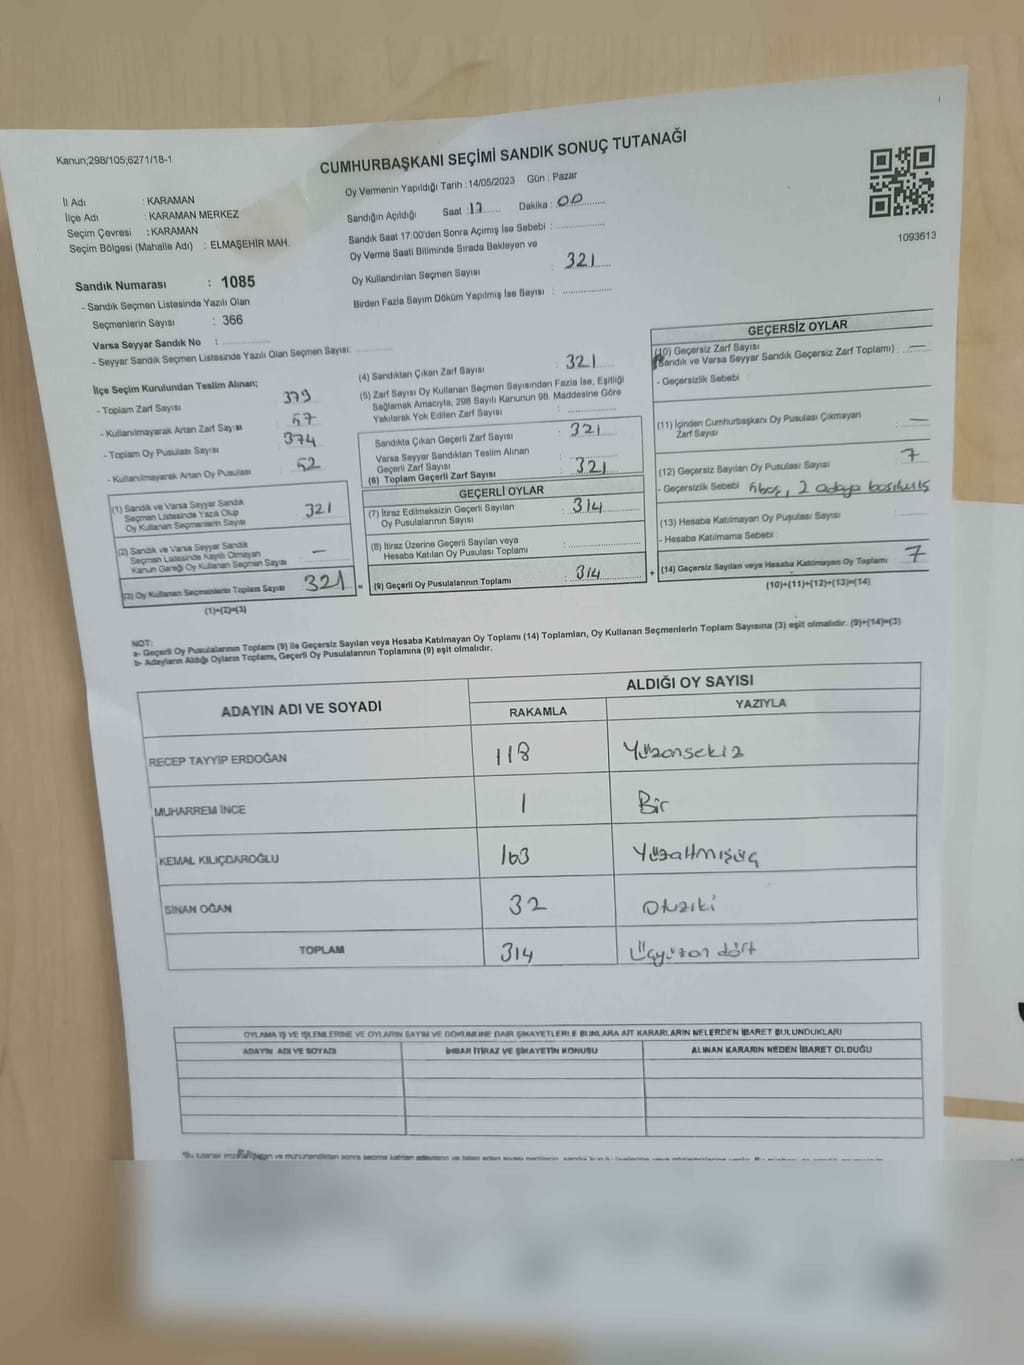 Kanun;298/105;6271/18-1
CUMHURBAŞKANI SEÇİMİ SANDIK SONUÇ TUTANAĞI
Oy Vermenin Yapıldığı Tarih : 14/05/2023 Gün : Pazar
İl Adı : KARAMAN
İlçe Adı : KARAMAN MERKEZ
Seçim Çevresi : KARAMAN
Seçim Bölgesi (Mahalle Adı) : ELMAŞEHİR MAH.
1093613
Sandık Numarası : 1085
- Sandık Seçmen Listesinde Yazılı Olan
Seçmenlerin Sayısı : 366
Varsa Seyyar Sandık No :
- Seyyar Sandık Seçmen Listesinde Yazılı Olan Seçmen Sayısı:
Sandığın Açıldığı Saat : 17 Dakika : 00
Sandık Saat 17:00'den Sonra Açımış İse Sebebi :
Oy Verme Saati Bitiminde Sırada Bekleyen ve
Oy Kullandırılan Seçmen Sayısı : 321
Birden Fazla Sayım Döküm Yapılmış İse Sayısı :
İlçe Seçim Kurulundan Teslim Alınan;
- Toplam Zarf Sayısı : 379
- Kullanılmayarak Artan Zarf Sayısı : 57
- Toplam Oy Pusulası Sayısı : 374
- Kullanılmayarak Artan Oy Pusulası : 52
(1) Sandık ve Varsa Seyyar Sandık
Seçmen Listesinde Yazılı Olup
Oy Kullanan Seçmenlerin Sayısı : 321
(2) Sandık ve Varsa Seyyar Sandık
Seçmen Listesinde Kayıtlı Olmayan
Kanun Gereği Oy Kullanan Seçmen Sayısı : —
(3) Oy Kullanan Seçmenlerin Toplam Sayısı 321 =
(1)+(2)=(3)
(4) Sandıktan Çıkan Zarf Sayısı : 321
(5) Zarf Sayısı Oy Kullanan Seçmen Sayısından Fazla İse, Eşitliği
Sağlamak Amacıyla, 298 Sayılı Kanunun 98. Maddesine Göre
Yakılarak Yok Edilen Zarf Sayısı :
Sandıkta Çıkan Geçerli Zarf Sayısı : 321
Varsa Seyyar Sandıktan Teslim Alınan
Geçerli Zarf Sayısı :
(6) Toplam Geçerli Zarf Sayısı : 321
GEÇERLİ OYLAR
(7) İtiraz Edilmeksizin Geçerli Sayılan
Oy Pusulalarının Sayısı : 314
(8) İtiraz Üzerine Geçerli Sayılan veya
Hesaba Katılan Oy Pusulası Toplamı :
(9) Geçerli Oy Pusulalarının Toplamı : 314 +
GEÇERSİZ OYLAR
(10) Geçersiz Zarf Sayısı
(Sandık ve Varsa Seyyar Sandık Geçersiz Zarf Toplamı) : —
- Geçersizlik Sebebi :
(11) İçinden Cumhurbaşkanı Oy Pusulası Çıkmayan
Zarf Sayısı : —
(12) Geçersiz Sayılan Oy Pusulası Sayısı : 7
- Geçersizlik Sebebi : 2 adaya basılmış
(13) Hesaba Katılmayan Oy Pusulası Sayısı :
- Hesaba Katılmama Sebebi :
(14) Geçersiz Sayılan veya Hesaba Katılmayan Oy Toplamı : 7
(10)+(11)+(12)+(13)=(14)
NOT:
a- Geçerli Oy Pusulalarının Toplamı (9) ile Geçersiz Sayılan veya Hesaba Katılmayan Oy Toplamı (14) Toplamları, Oy Kullanan Seçmenlerin Toplam Sayısına (3) eşit olmalıdır. (9)+(14)=(3)
b- Adayların Aldığı Oyların Toplamı, Geçerli Oy Pusulalarının Toplamına (9) eşit olmalıdır.
ADAYIN ADI VE SOYADI ALDIĞI OY SAYISI
RAKAMLA YAZIYLA
RECEP TAYYİP ERDOĞAN 118 Yüzonsekiz
MUHARREM İNCE 1 Bir
KEMAL KILIÇDAROĞLU 163 Yüzaltmışüç
SİNAN OĞAN 32 Otuziki
TOPLAM 314 Üçyüzon dört
OYLAMA İŞ VE İŞLEMLERİNE VE OYLARIN SAYIM VE DÖKÜMÜNE DAİR ŞİKAYETLERLE BUNLARA AİT KARARLARIN NELERDEN İBARET BULUNDUKLARI
ADAYIN ADI VE SOYADI İHBAR İTİRAZ VE ŞİKAYETİN KONUSU ALINAN KARARIN NEDEN İBARET OLDUĞU